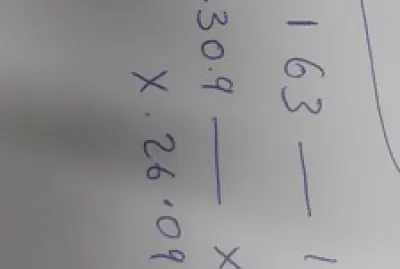 163 — 1
.30.9 — X
X . 26.09